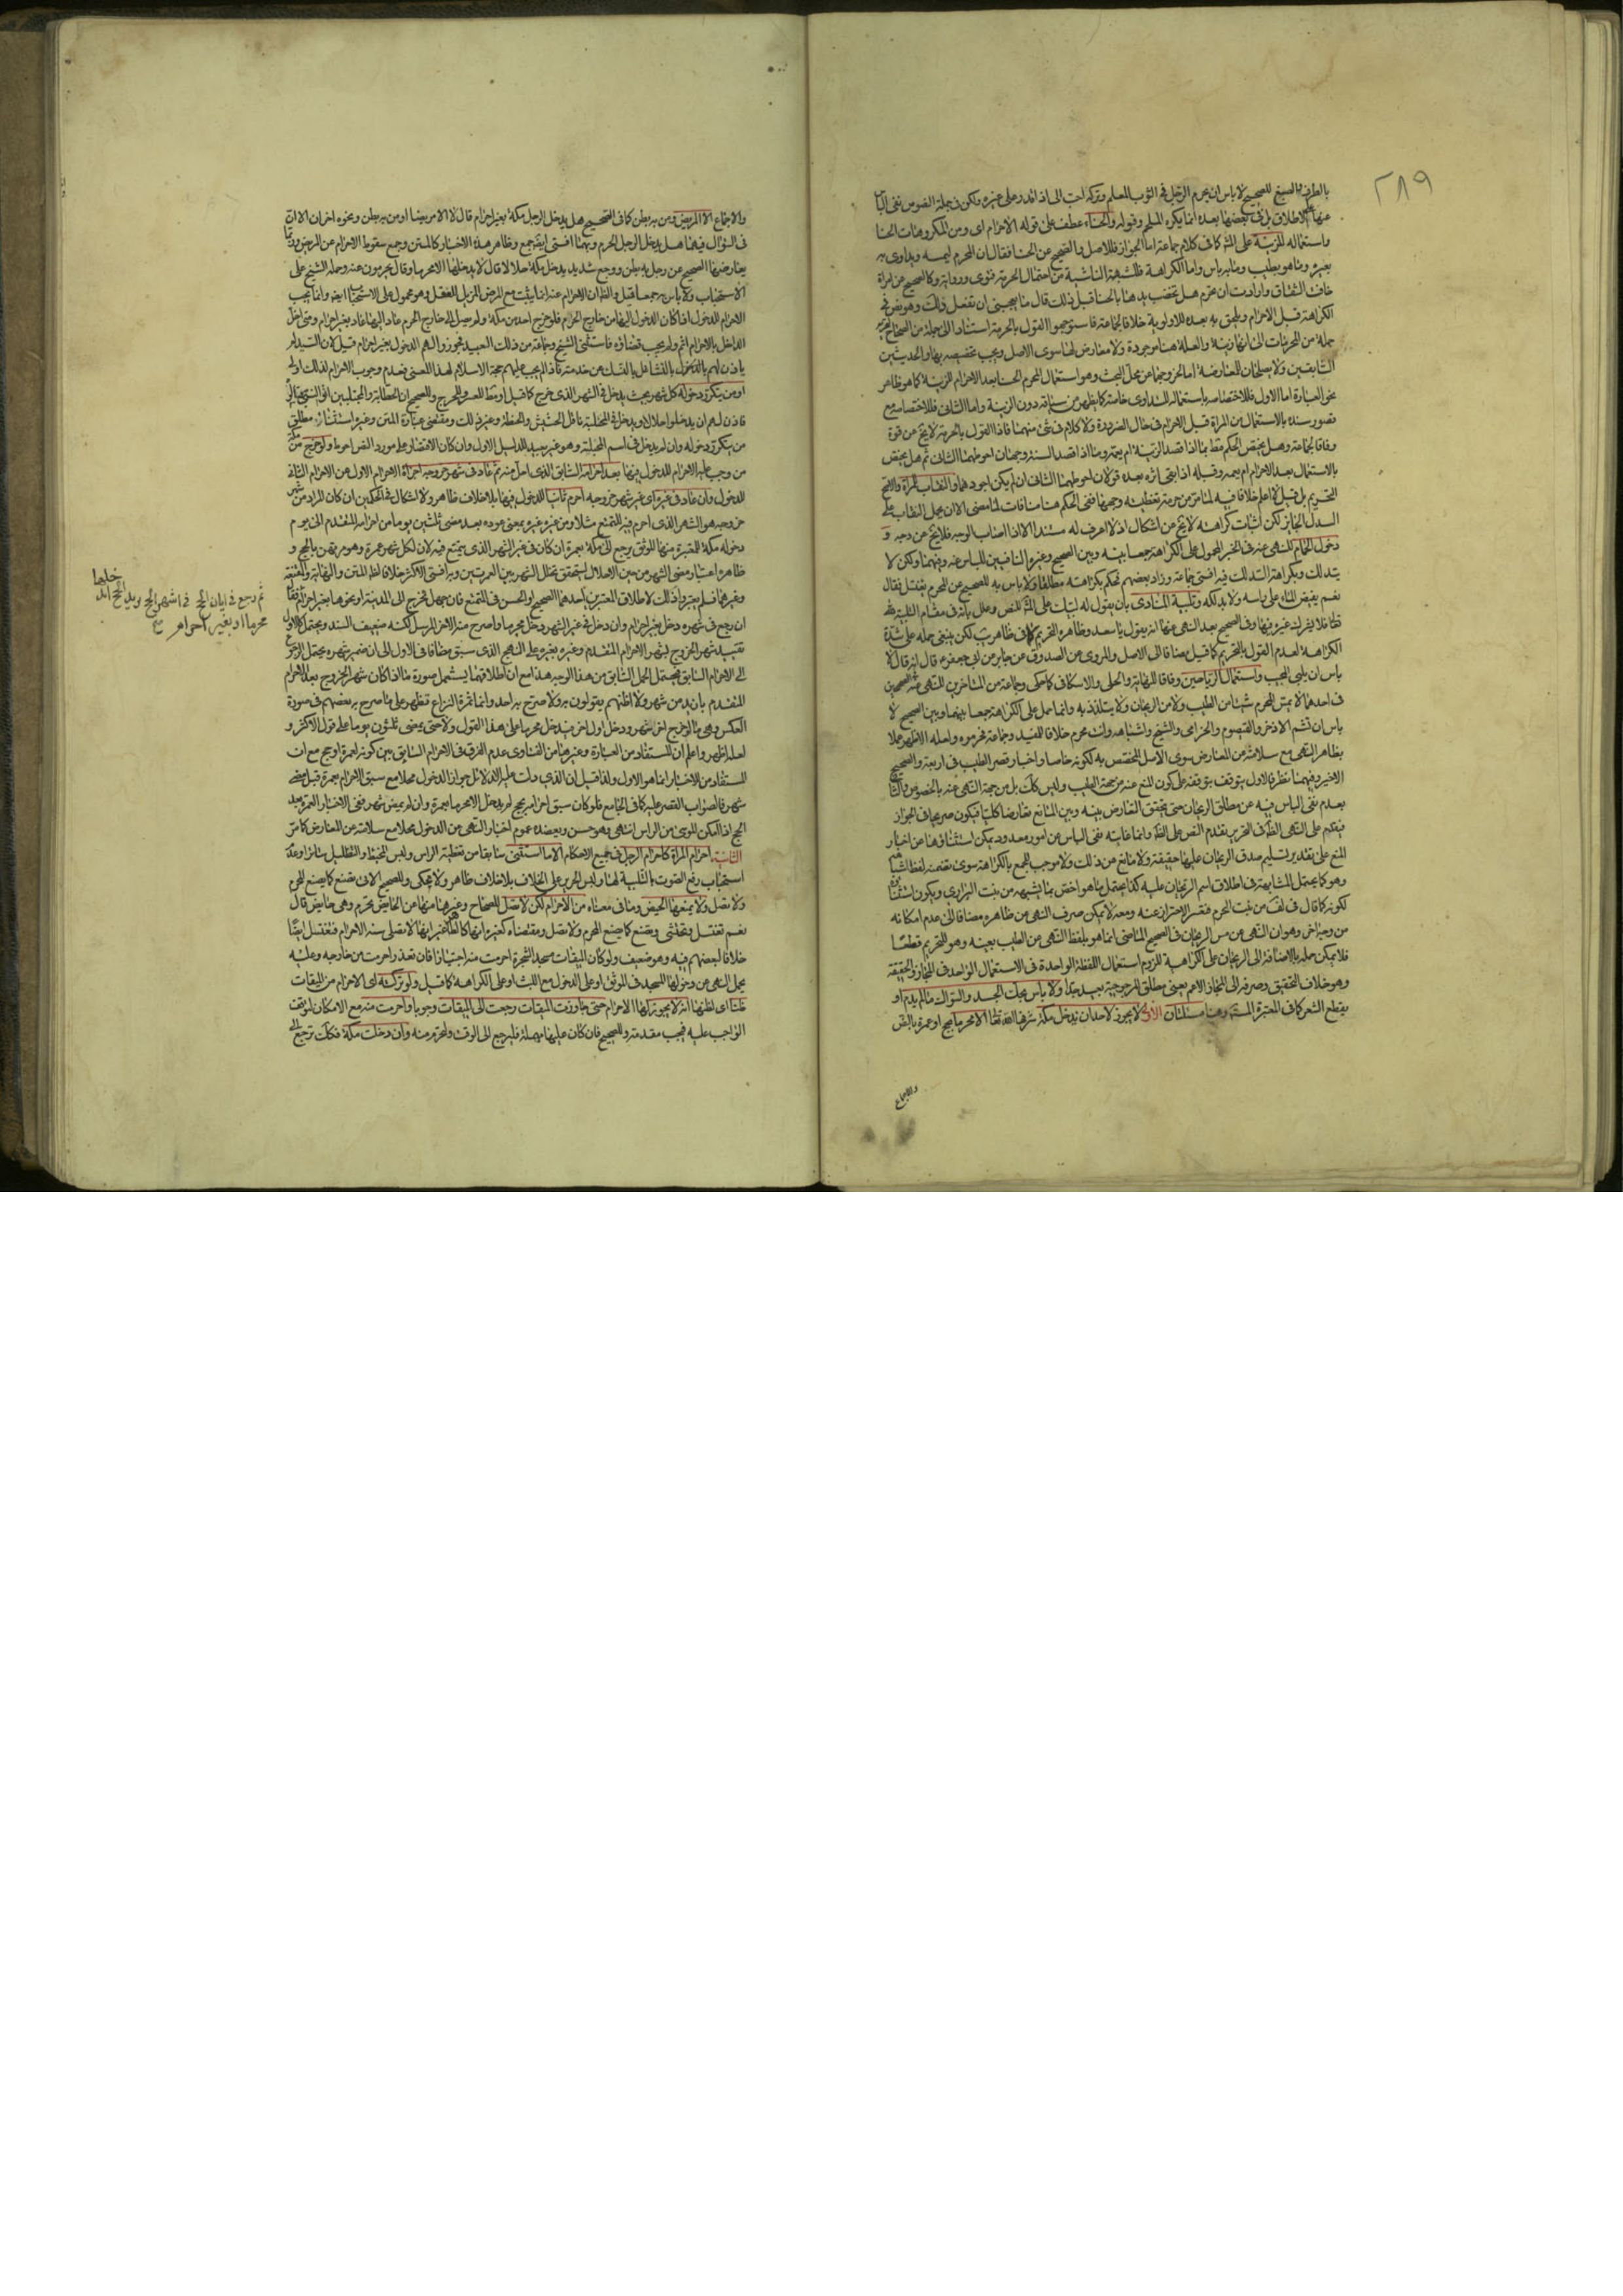 ٢٨٩
بالطرف والصبغ للصحيح لا باس ان يحرم الرجل في الثوب المعلم وتركه احب الى اذا قدر على غيره ولكن في جملة النصوص نفي الباس
عنها على الاطلاق بل في بعضها بعده انما يكره الملحم وقوله والحناء عطف على قوله الاحرام اى ومن المكروهات الحنا
واستعماله للزينة على كما في كلام جماعة اما الجواز فللاصل والصحيح عن الحنا فقال ان المحرم ليمسه ويداوى به
بعيره وما هو بطيب وما به باس واما الكراهة فللشبهة الناشية من احتمال الحرمة فتوى ورواية وكالصحيح عن امراة
خافت الشقاق وارادت ان تحرم هل تخضب يدها بالحنا قبل ذلك قال ما يعجبني ان تفعل ذلك وهو نص في
الكراهة قبل الاحرام ويلحق به بعده للاولوية خلافا لجماعة فاستوجهوا القول بالحرمة استنادا الى جملة من الصحاح
جملة من المحرمات الى انها زينة والعلة هنا موجودة ولا معارض لها سوى الاصل ويجب تخصيصه بها والحديثين
السابقين ولا يصلحان للمعارضة اما لخروجهما عن محل البحث وهو استعمال المحرم الحنا بعد الاحرام للزينة كما هو ظاهر
نحو العبارة اما الاول فللاختصاصه باستعماله للتداوى خاصة كما يظهر من سياقه دون الزينة واما الثاني فللاختصاصه مع
قصور سنده بالاستعمال من المراة قبل الاحرام في حال الضرورة ولا كلام في شئ منهما فاذا القول بالحرمة لا يخ عن قوة
وفاقا لجماعة وهل يختص الحكم مط بما اذا قصد الزينة ام يعمه وما اذا قصد السنة وجهان احوطهما الثاني ثم هل يختص
بالاستعمال بعد الاحرام ام يعمه وقبله اذا بقى اثره بعده قولان احوطهما الثاني ان لم يكن اجود هما والنقاب للمراة والاصح
التحريم بل قيل لا اعلم خلافا فيه لما مر من حرمة تغطيته وجهها ففي الحكم هنا منافات لما مضى الا ان يحمل النقاب على
السدل الجايز لكن اثبات كراهة لا يخ عن اشكال اذ لا اعرف له مستندا الا اذا اصاب الوجه فلا يخ عن وجه و
دخول الحمام للنهى عنه في الخبر المحمول على الكراهة جمعا بينه وبين الصحيح وغيره النافيين للباس عنه وفيهما ولكن لا
يتدلك وبكراهة التدلك فيه افتى جماعة وزاد بعضهم فحكم بكراهته مطلقا ولا باس به للصحيح عن المحرم يغتسل فقال
نعم يفيض الماء على راسه ولا يدلكه وتلبية المنادى بان يقول له لبيك على للنص وعلل بانه في مقام التلبية لله
تعا فلا يشرك غيره فيها وفي الصحيح بعد النهى عنها انه يقول يا سعد وظاهره التحريم كما في ظاهر يب لكن ينبغي حمله على شدة
الكراهة لعدم القول بالتحريم كما قيل مضافا الى الاصل والمروى عن الصدوق عن جابر عن ابى جعفر ع قال انه قال لا
باس ان يلبى المجيب واستعمال الرياحين وفاقا للنهاية والحلى والاسكاف كما حكى وجماعة من المتاخرين للنهى عنه في الصحيحين
في احدهما لا يمس المحرم شيئا من الطيب ولا من الريحان ولا يتلذذ به وانما حمل على الكراهة جمعا بينهما وبين الصحيح لا
باس ان تشم الاذخر والقيصوم والخزامى والشيح واشباهه وانت محرم خلافا للمفيد وجماعة فحرموه ولعله الاظهر عملا
بظاهر النهى مع سلامته عن المعارض سوى الاصل المختص به لكونه خاصا واخبار قصر الطيب في اربعة والصحيح
الاخير وفيهما نظر فالاول بتوقف توقفه على كون المنع عنه من جهة الطيب وليس كك بل من جهة النهى عنه بالخصوص والثانى
بعدم نفى الباس فيه عن مطلق الريحان حتى يتحقق التعارض بينه وبين المانع تعارضا كليا فيكون صريحا في الجواز
فيقدم على النهى الظاهر في التحريم تقدم النص على الظ وانما غايته نفى الباس عن امور معدودة يمكن استثناؤها عن اخبار
المنع على تقدير تسليم صدق الريحان عليها حقيقة ولا مانع من ذلك ولا موجب للجمع بالكراهة سوى تضمنه لفظ اشباهه
وهو كما يحتمل المشابهة في اطلاق اسم الريحان عليه كذا يحتمل ما هو اخص بما يشبهه من نبت البرارى ويكون استثناؤه
لكونه كما قال في لف من نبت الحرم فيعسر الاحتراز عنه ومعه لا يمكن صرف النهى عن ظاهره مضافا الى عدم امكانه
من وجه اخر وهو ان النهى عن مس الريحان في الصحيح الماضى انما هو بلفظ النهى عن الطيب بعينه وهو للتحريم قطعا
فلا يمكن حمله بالاضافة الى الريحان على الكراهية للزوم استعمال اللفظة الواحدة في الاستعمال الواحد في المجاز والحقيقة
وهو خلاف التحقيق وصرفه الى المجاز الاعم يعنى مطلق المرجوحية بعيد جدا ولا باس بحك الجسد والسواك ما لم يدم او
يقطع الشعر كما في المعتبرة وهنا مسئلتان الاولى لا يجوز لاحد ان يدخل مكة شرفها الله تعا الا محرما بحج او عمرة بالنص
والاجماع
والاجماع الا المريض ومن به بطن كما في الصحيح هل يدخل الرجل مكة بغير احرام قال لا الا مريضا او من به بطن ونحوه اخر ان الا ان
في السؤال فيهما هل يدخل الرجل الحرم وبهما افتى ايضا جمع وظاهر هذه الاخبار كالمتن وجمع سقوط الاحرام عن المريض وربما
يعارضها الصحيح عن رجل به بطن ووجع شديد يدخل مكة حلالا قال لا يدخلها الا محرما وقال يحرمون عنه وحمله الشيخ على
الاستحباب ولا باس به جمعا قيل والظ ان الاحرام عنه انما يثبت مع المرض المزيل للعقل وهو محمول على الاستحباب ايضا وانما يجب
الاحرام للدخول اذا كان الدخول اليها من خارج الحرام فلو خرج احد من مكة ولم يصل الى خارج الحرم عاد اليها عاد بغير احرام ومتى اخل
الداخل بالاحرام اثم ولم يجب قضاؤه فاستثنى الشيخ وجماعة من ذلك العبيد فجوزوا لهم الدخول بغير احرام قيل لان السيد لم
ياذن لهم بالتشاغل بالنسك عن خدمته فاذا لم يجب عليهم حجة الاسلام لهذا المعنى فعدم وجوب الاحرام لذلك اولى
او من يتكرر دخوله كل شهر بحيث يدخل في الشهر الذى خرج كما قيل او مط للعسر والحرج وللصحيح ان الحطابة والمجتلبين اتوا النبى ص فسالوه
فاذن لهم ان يدخلوا حلالا ويدخل في المجتلبة ناقل الحشيش والحنطة وغير ذلك ومقتضى عبارة المتن وغيره استثناء مطلق
من يتكرر دخوله وان لم يدخل في اسم المجتلبة وهو غير بعيد للدليل الاول وان كان الاقتصار على مورد النص احوط ولو خرج من مكة
من وجب عليه الاحرام للدخول فيها بعد احرامه السابق الذى احل منه ثم عاد في شهر خروجه اجزاه الاحرام الاول عن الاحرام الثانى
للدخول وان عاد في غيره اى غير شهر خروجه احرم ثانيا للدخول فيها بلا خلاف ظاهر ولا اشكال في الحكمين ان كان المراد من شهر
خروجه هو الشهر الذى احرم فيه للتمتع مثلا ومن غيره غيره بمعنى عوده بعد مضى ثلثين يوما من احرامه المتقدم الى يوم
دخوله مكة للمعتبرة منها الموثق يرجع الى مكة بعمرة ان كان في غير الشهر الذى يتمتع فيه لان لكل شهر عمرة وهو مرتهن بالحج و
ظاهره اعتبار مضى الشهر من حين الاهلال ليتحقق تخلل الشهر بين العمرتين وبه افتى الاكثر خلافا لظ المتن والنهاية والمقنعة
وغيرها فلم يعتبروا ذلك لاطلاق المعتبرين احدهما الصحيح او الحسن في المتمتع فان جهل فخرج الى المدينة او نحوها بغير احرام
ثم رجع في ايان الحج في اشهر الحج ويريد الحج ايدخلها
محرما او بغير احرام
ان رجع في شهره دخل بغير احرام وان دخل في غير الشهر دخل محرما واصرح منه الاخر المرسل لكنه ضعيف السند ويحتمل كالاول
تقييد شهر الخروج بشهر الاحرام المتقدم وغيره بغيره على النهج الذى سبق مضافا في الاول الى ان ضمير شهره يحتمل الرجوع
الى الاحرام السابق فيحتمل الحمل السابق من هذا الوجه هذا مع ان اطلاقهما يشمل صورة ما اذا كان شهر الخروج بعد الاحرام
المتقدم بازيد من شهر ولا اظنهم يقولون به ولا صرح به احد وانما ثمرة النزاع تظهر على ما صرح به بعضهم في صورة
العكس وهى ما لو خرج اخر شهر ودخل اول اخر فيدخل محرما على هذا القول ولا حتى يمضى ثلثون يوما على قول الاكثر و
لعله اظهر واعلم ان المستفاد من العبارة وغيرها من الفتاوى عدم الفرق في الاحرام السابق بين كونه لعمرة او حج مع ان
المستفاد من الاخبار انما هو الاول ولذا قيل ان الذى دلت عليه الدلائل جواز الدخول محلا مع سبق الاحرام بعمرة قبل مضى
شهر فالصواب القصر عليه كما في الجامع فلو كان سبق احرامه بحج لم يدخل الا محرما بعمرة وان لم يمض شهر ففى الاخبار العمرة بعد
الحج اذا امكن الموسى من الراس انتهى وهو حسن ويعضده عموم اخبار النهى عن الدخول محلا مع سلامته عن المعارض كما مر
الثانية احرام المراة كاحرام الرجل في جميع الاحكام الا ما استثنى سابقا من تغطية الراس ولبس المخيط والتظليل سائرا وعدم
استحباب رفع الصوت بالتلبية لها ولبس الحرير على الخلاف بلا خلاف ظاهر ولا محكى وللصحيح الاتى تصنع كما يصنع المحرم
ولا تصلى ولا يمنعها الحيض وما في معناه من الاحرام لكن لا تصلى للصحاح وغيرها منها عن الحايض تحرم وهى حايض قال
نعم تغتسل وتحتشى وتصنع كما يصنع المحرم ولا تصلى ومقتضاه كغيره انها كالطاهر غير انها لا تصلى سنة الاحرام فتغتسل ايضا
خلافا لبعضهم فيه وهو ضعيف ولو كان الميقات مسجد الشجرة احرمت منه اجتيازا فان تعذر احرمت من خارجه وعليه
يحمل النهى عن دخولها المسجد في الموثق او على الدخول مع اللبث او على الكراهة كما قيل ولو تركته اى الاحرام من الميقات
ظنا اى لظنها انه لا يجوز لها الاحرام حتى جاوزت الميقات رجعت الى الميقات وجوبا واحرمت منه مع الامكان لتوقف
الواجب عليه فيجب مقدمة وللصحيح فان كان عليها مهلة فليرجع الى الوقت ولتحرم منه وان دخلت مكة فكك ترجع الى